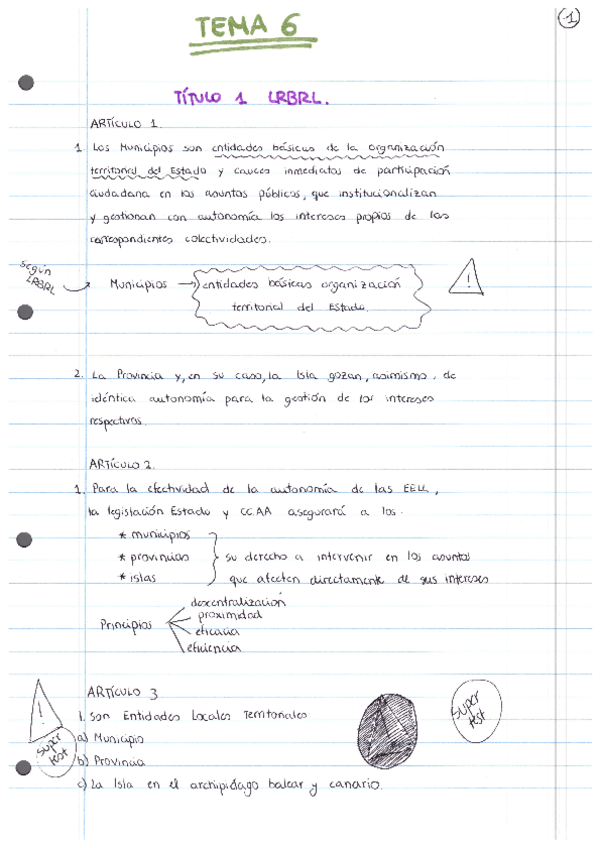 TEMA 6
1
TÍTULO 1 LRBRL.
ARTÍCULO 1.
1. Los Municipios son entidades básicas de la organización
territorial del Estado y cauces inmediatos de participación
ciudadana en los asuntos públicos, que institucionalizan
y gestionan con autonomía los intereses propios de las
correspondientes colectividades.
según
LRBRL
Municipios → entidades básicas organización
territorial del Estado.
!
2. La Provincia y, en su caso, la Isla gozan, asimismo, de
idéntica autonomía para la gestión de los intereses
respectivos.
ARTÍCULO 2.
1. Para la efectividad de la autonomía de las EELL,
la legislación Estado y CCAA asegurará a los.
* municipios
* provincias
* islas
su derecho a intervenir en los asuntos
que afecten directamente de sus intereses
Principios
descentralización
proximidad
eficacia
eficiencia
ARTÍCULO 3
!
super
test
1. Son Entidades Locales Territoriales
a) Municipio
b) Provincia
c) La Isla en el archipiélago balear y canario.
super
test